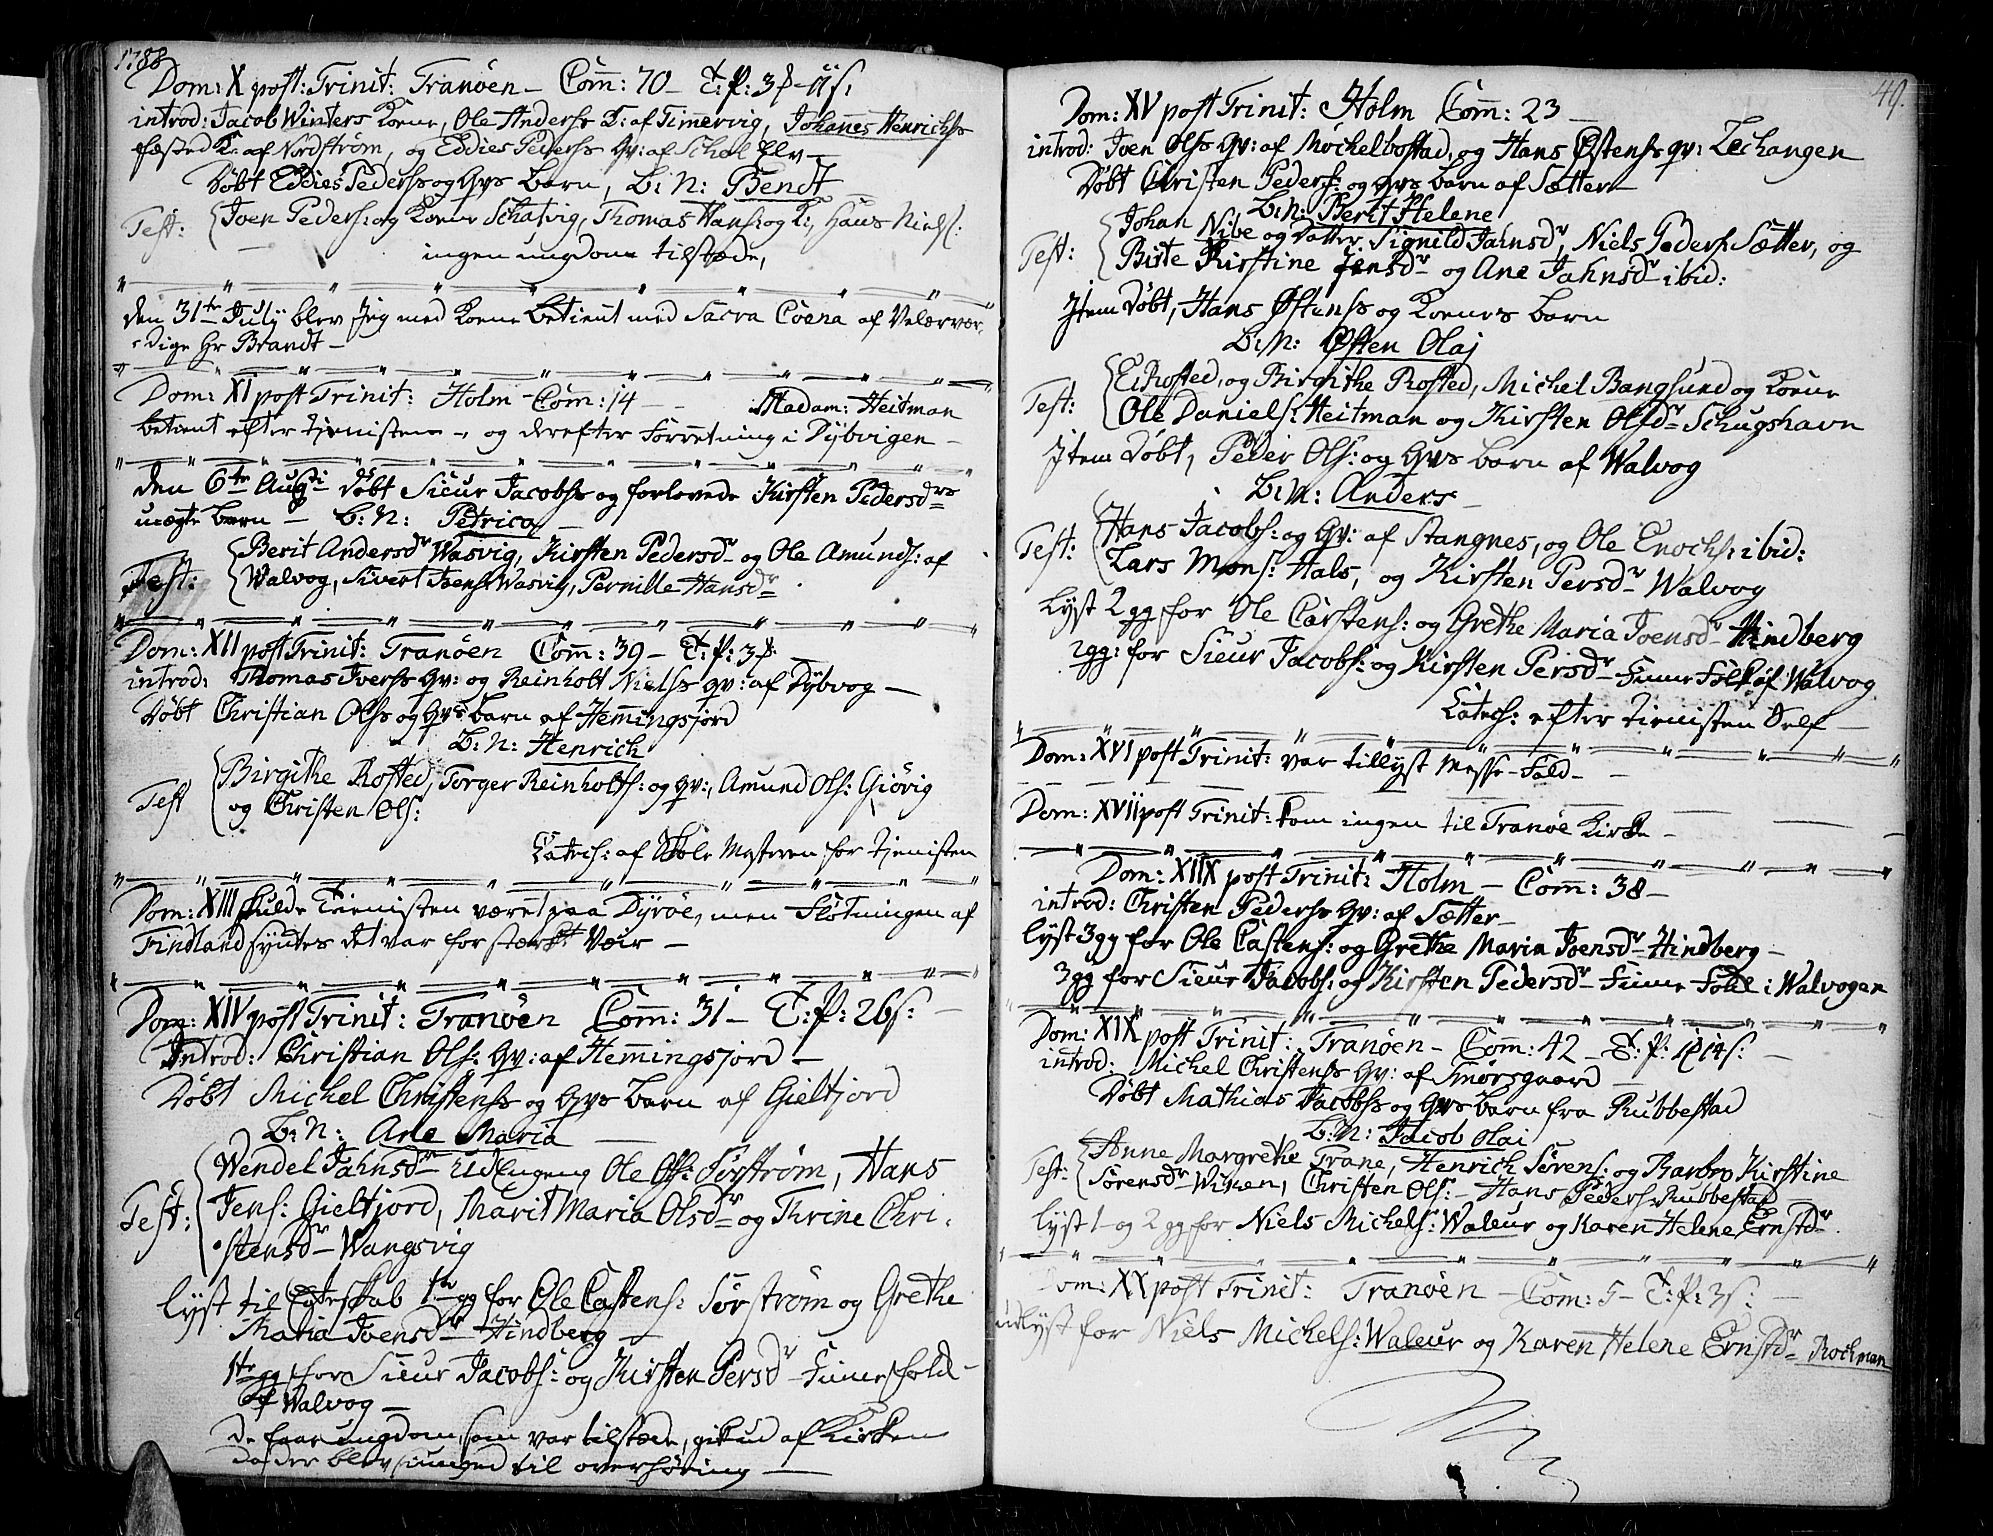 1788
Dom: X post: Trinit: Tranöen – Com̄: 70 – T: P: 3ß 11s:
introd: Jacob Winters Kone, Ole Anderss K: af Timervig, Johannes Henrichss
fæsted K: af Nordström, og Eddies Pederss Qv: af Schøl Elv –
Døbt Eddies Pederss og Qvs barn, B: N: Bendt
Test: Joen Peders: og Kone Schatvig, Thomas Hans: og K:, Hans Niels:
ingen ungdom tilstæde,
den 31te July blev Jeg med Kone betient med Sacra Coena af Velærvær,
dige Hr Brandt –
Dom: XI post Trinit: Holm – Com̄: 14 – Madam: Heitman
betient efter tjenisten – og derefter Forretning i Dybvigen –
den 6te Augsti døbt Sieur Jacobss og forlovede Kirsten Pedersdrs
uægte barn – B: N: Petrica –
Test: Berit Andersdr Wasvig, Kirsten Pedersdr og Ole Amunds: af
Walvog, Sivert Joenss Wasvig, Pernille Hansdr
Dom: XII post Trinit: Tranöen Com̄: 39 – T: P: 3ß:
introd: Thomas Iverss Qv: og Reinholt Nielss qv: af Dybvog –
Døbt Christian Olss og Qvs barn af Hem̄ingsjord
B: N: Henrich
Test Birgithe Rosted, Torger Reinholts: og qv:, Amund Ols: Giövig
og Christen Ols:
Catech: af Skole Mesteren for tjenisten
Dom: XIII skulde Tienisten været paa Dyröe, men Flötningen af
Findland syntes det var for stærkt Veir –
Dom: XIV post Trinit: Tranöen Com̄: 31 – T: P: 26s: –
Introd: Christian Ols: Qv: af Hem̄ingsjord –
Døbt Michel Christenss og Qvs barn af Gieltjord
B: N: Ane Maria –
Test: Wendel Jahnsdr Udlugeng Ole Ols: Sörström, Hans
Jens: Gieltjord, Marit Maria Olsdr og Thrine Chri,
stensdr – Wangsvig
lyst til Egteskab 1te gg for Ole Castens: Sörström og Grethe
Maria Joensdr Hindberg –
1te gg for Sieur Jacobs: og Kirsten Persdr – Finnefolk –
af Walvog –
de faae ungdom, som var tilstæde, gik ud af Kirken
da der blev siunged til overhöring –
49.
Dom: XV post Trinit: Holm Com̄: 23 –
introd: Joen Olss Qv: af Mochelbostad, og Hans Östenss qv: Lechangen
Døbt Christen Peders: og qvs barn af Sætter –
B: N: Berit Helene
Test: Johan Nibe og datter Signild Jahnsdr, Niels Peders: Sætter, og
Birte Kirstine Jensdr og Ane Jahnsdr ibid:
Item Døbt, Hans Östenss og Kones barn
B: N: Østen Olaj
Test: E: Rosted, og Birgithe Rosted, Michel Bangsund og Kone
Ole Daniels: Heitman og Kirsten Olsdr Schugshavn
Item Døbt, Peder Ols: og Qvs barn af Walvog
B: N: Anders –
Test: Hans Jacobs: og Qv: af Stangnes, og Ole Enochs: ibid:
Lars Mons: Hals, og Kirsten Persdr Walvog
Lyst 2 gg for Ole Carstens: og Grethe Maria Joensdr Hindberg
2gg: for Sieur Jacobs: og Kirsten Persdr – Finne Folk af Walvog
Catech: efter tienisten Self –
Dom: XVI post Trinit: var tillyst Messe-Fald –
Dom: XVII post Trinit: kom ingen til Tranöe Kirke –
Dom: XIIX post Trinit: Holm – Com̄: 38 –
introd: Christen Pederss Qv: af Sætter –
lyst 3gg for Ole Castens: og Grethe Maria Joensdr Hindberg –
3gg for Sieur Jacobs: og Kirsten Pedersdr – Finne Folk i Walvogen
Dom: XIX post Trinit: Tranöen – Com̄: 42 – T: P: 1ß 14s: –
introd: Michel Christenss Qv: af Smörsgaard –
Døbt Mathias Jacobss og Qvs barn fra Rubbestad
B: N: Jacob Olai
Test: Anne Margrethe Trane, Henrich Sörens: og Barbro Kirstine
Sörensdr – Wiken, Christen Ols: – Hans Peders: Rubbestad
lyst 1 og 2 gg for Niels Michels: Waleur og Karen Helene Ernstdr
Dom: XX post Trinit: Tranöen – Com: 5 – T: P: 3s: –
udlyst for Niels Michels: Waleur og Karen Helene Ernstdr – Rochman